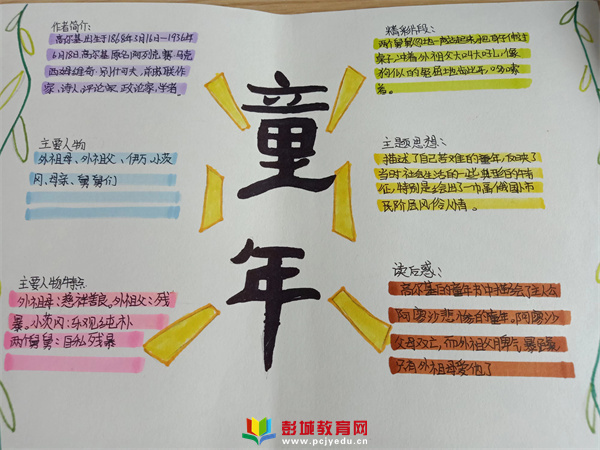 作者简介:
高尔基出生于1868年3月16日-1936年
6月18日,高尔基原名阿列克赛·马克
西姆维奇·别什可夫,前苏联作
家,诗人,评论家,政论家,学者。
主要人物
外祖母、外祖父、伊万、小茨
冈、母亲、舅舅们
主要人物特点
外祖母:慈祥善良。外祖父:残
暴。小茨冈:乐观纯朴
两个舅舅:自私残暴
童
年
精彩片段:
两个舅舅忽地一声站起来,把身子伸过
桌子,冲着外祖父大叫大吼,像
狗似的
着。
主题思想:
描述了自己苦难的童年,反映了
当时社会生活的一些典型的特
征,特别是绘出了一幅俄国小市
民阶层风俗人情。
读后感:
高尔基的童年书中描绘了主人公
阿廖沙悲惨的童年。阿廖沙
父母双亡,而外祖父脾气暴躁
只有外祖母爱他了
彭城教育网
www.pcjyedu.cn